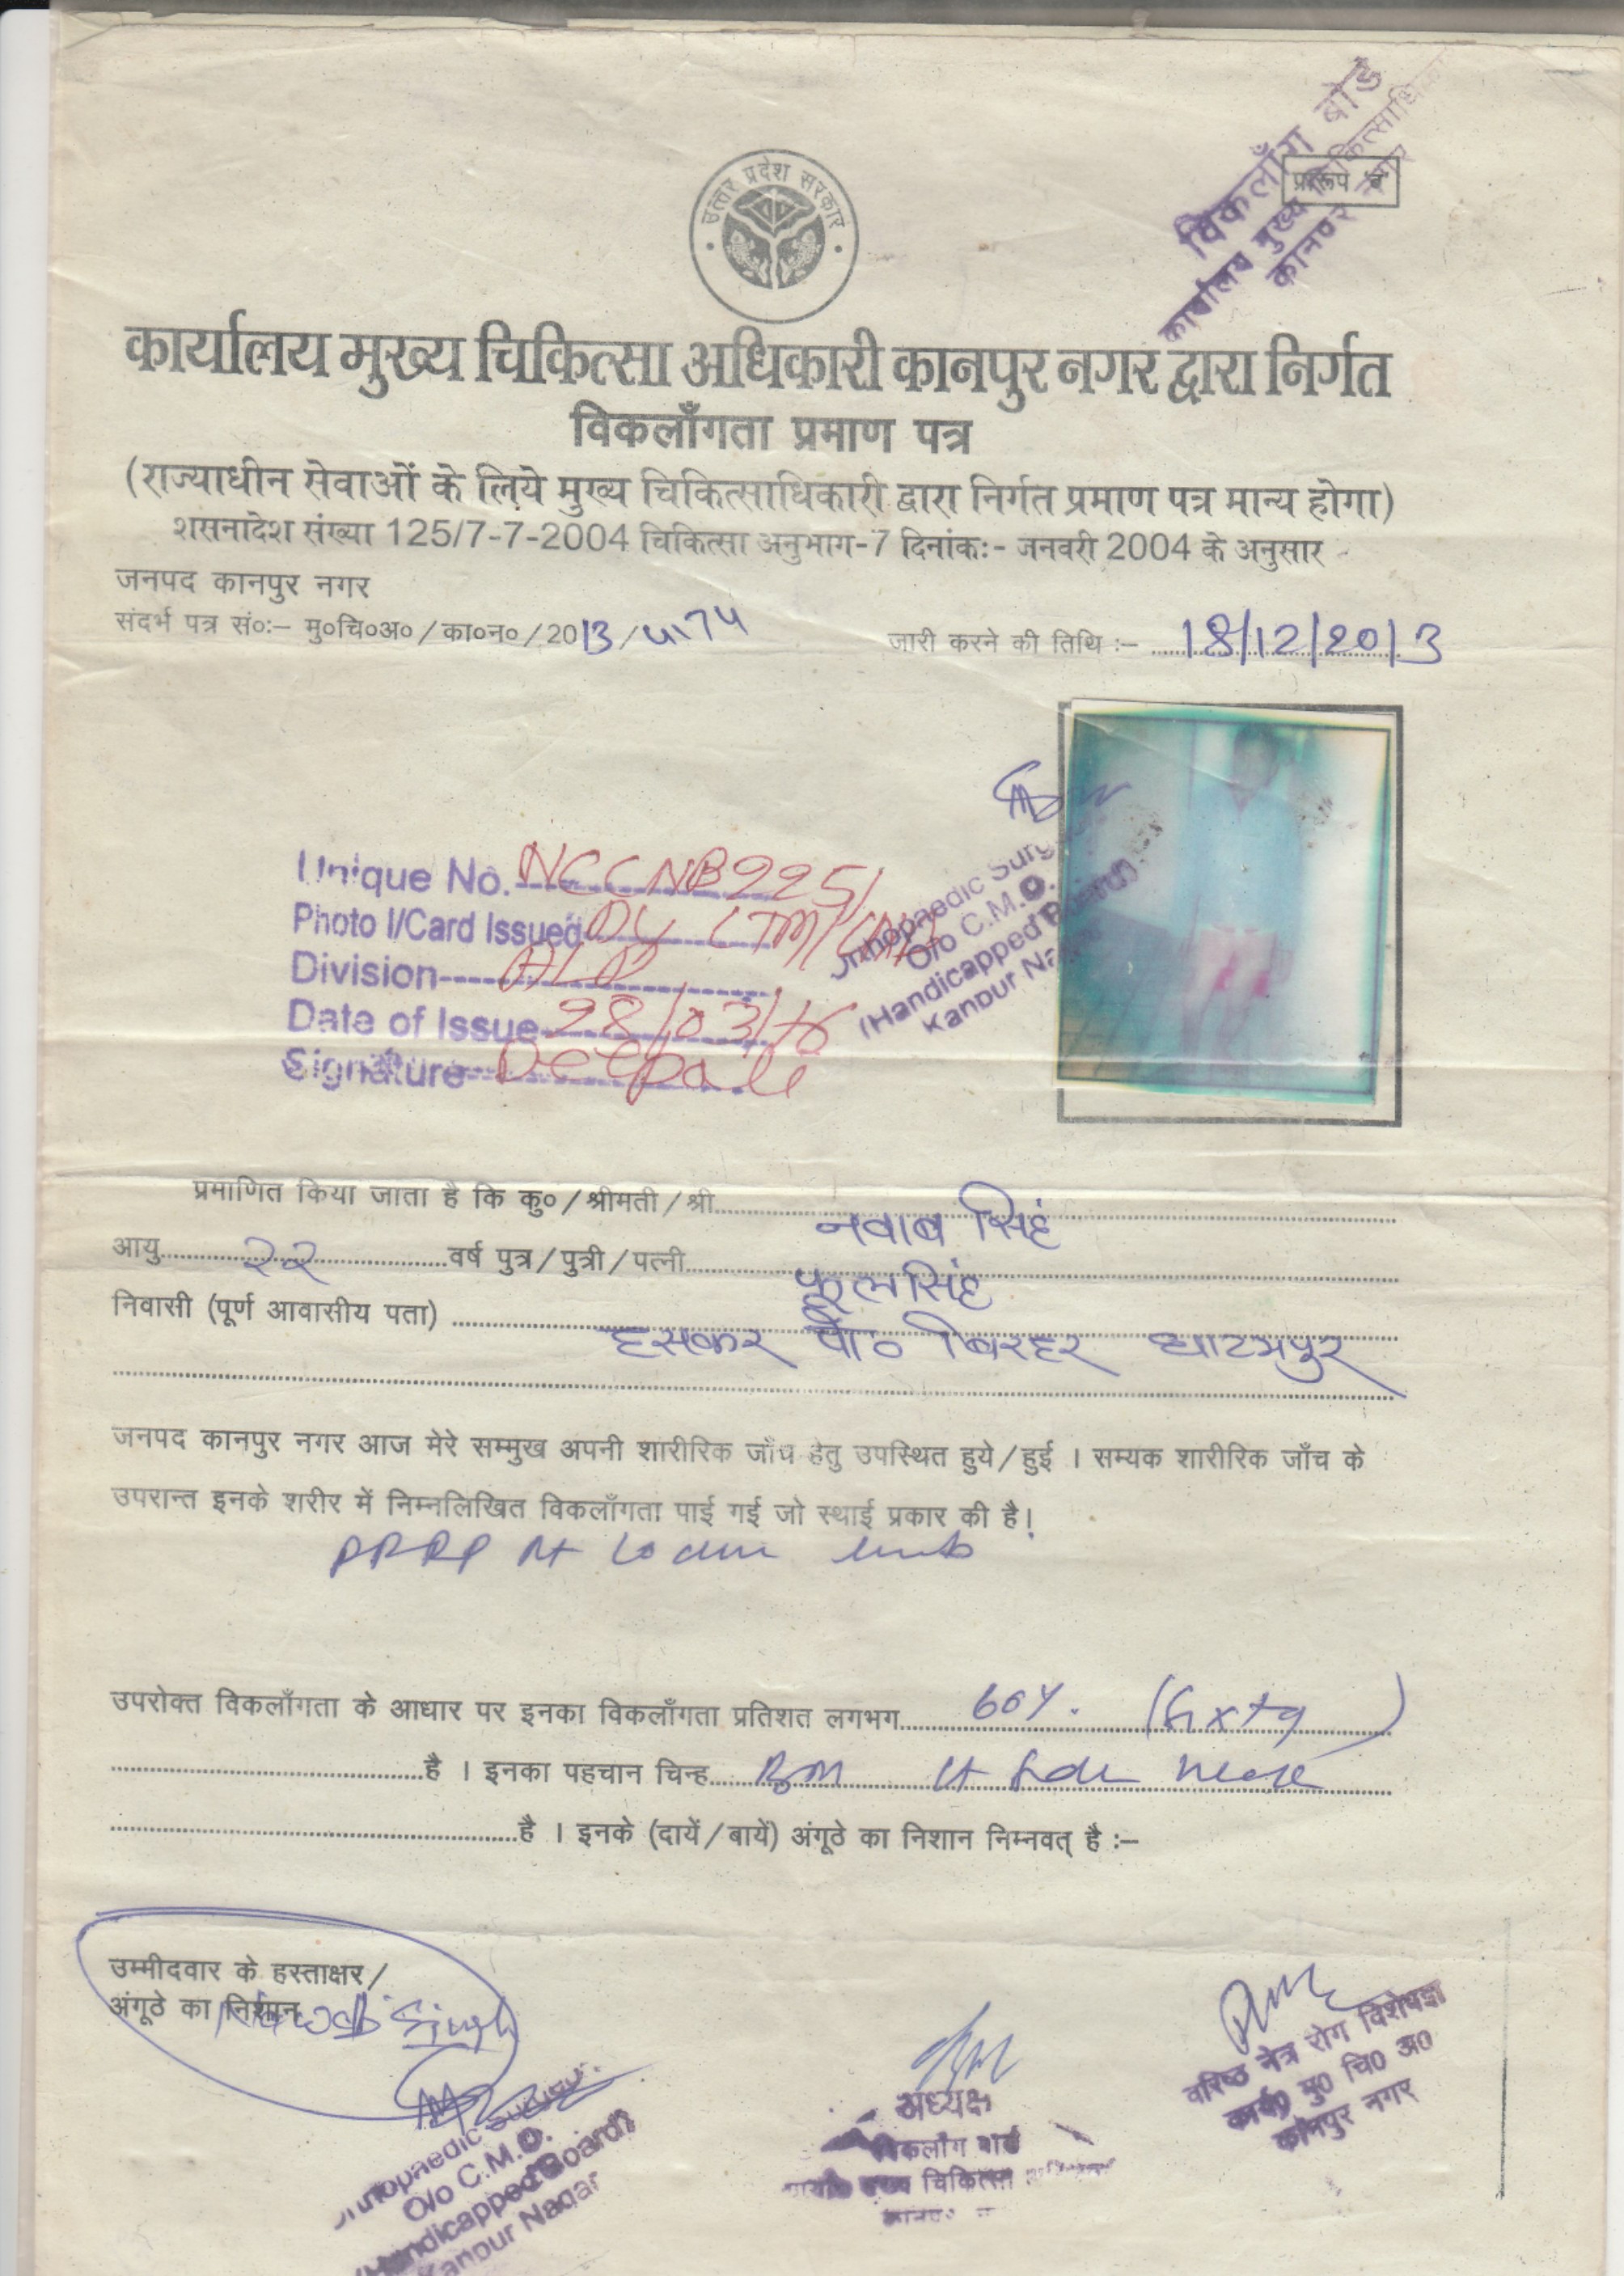 विकलाँग बोर्ड
कार्यालय मुख्य चिकित्साधिकारी
कानपुर नगर
प्रारूप 'ब'
उत्तर प्रदेश सरकार
कार्यालय मुख्य चिकित्सा अधिकारी कानपुर नगर द्वारा निर्गत
विकलाँगता प्रमाण पत्र
(राज्याधीन सेवाओं के लिये मुख्य चिकित्साधिकारी द्वारा निर्गत प्रमाण पत्र मान्य होगा)
शसनादेश संख्या 125/7-7-2004 चिकित्सा अनुभाग-7 दिनांकः- जनवरी 2004 के अनुसार
जनपद कानपुर नगर
संदर्भ पत्र सं०:– मु०चि०अ०/का०न०/2013/
जारी करने की तिथि :– 18/12/2013
Unique No. NCCNB2251
Photo I/Card Issued
Division
Date of Issue 28/03/16
Signature Deepali
Orthopaedic Surg
O/o C.M.O.
(Handicapped Board)
Kanpur Na
प्रमाणित किया जाता है कि कु०/श्रीमती/श्री नवाब सिंह
आयु २२ वर्ष पुत्र/पुत्री/पत्नी फूल सिंह
निवासी (पूर्ण आवासीय पता) हसकर पो० बिरहर घाटमपुर
जनपद कानपुर नगर आज मेरे सम्मुख अपनी शारीरिक जाँच हेतु उपस्थित हुये/हुई । सम्यक शारीरिक जाँच के
उपरान्त इनके शरीर में निम्नलिखित विकलाँगता पाई गई जो स्थाई प्रकार की है!
PPRP Rt lower limb
उपरोक्त विकलाँगता के आधार पर इनका विकलाँगता प्रतिशत लगभग 60%. (Sixty)
है । इनका पहचान चिन्ह BM
है । इनके (दायें/बायें) अंगूठे का निशान निम्नवत् है :–
उम्मीदवार के हस्ताक्षर/
अंगूठे का निशान
Nawab Singh
Orthopaedic Surgeon
O/o C.M.O.
(Handicapped Board)
Kanpur Nagar
अध्यक्ष
विकलाँग बोर्ड
कार्यालय मुख्य चिकित्सा अधिकारी
वरिष्ठ नेत्र रोग विशेषज्ञ
कार्या० मु० चि० अ०
कानपुर नगर